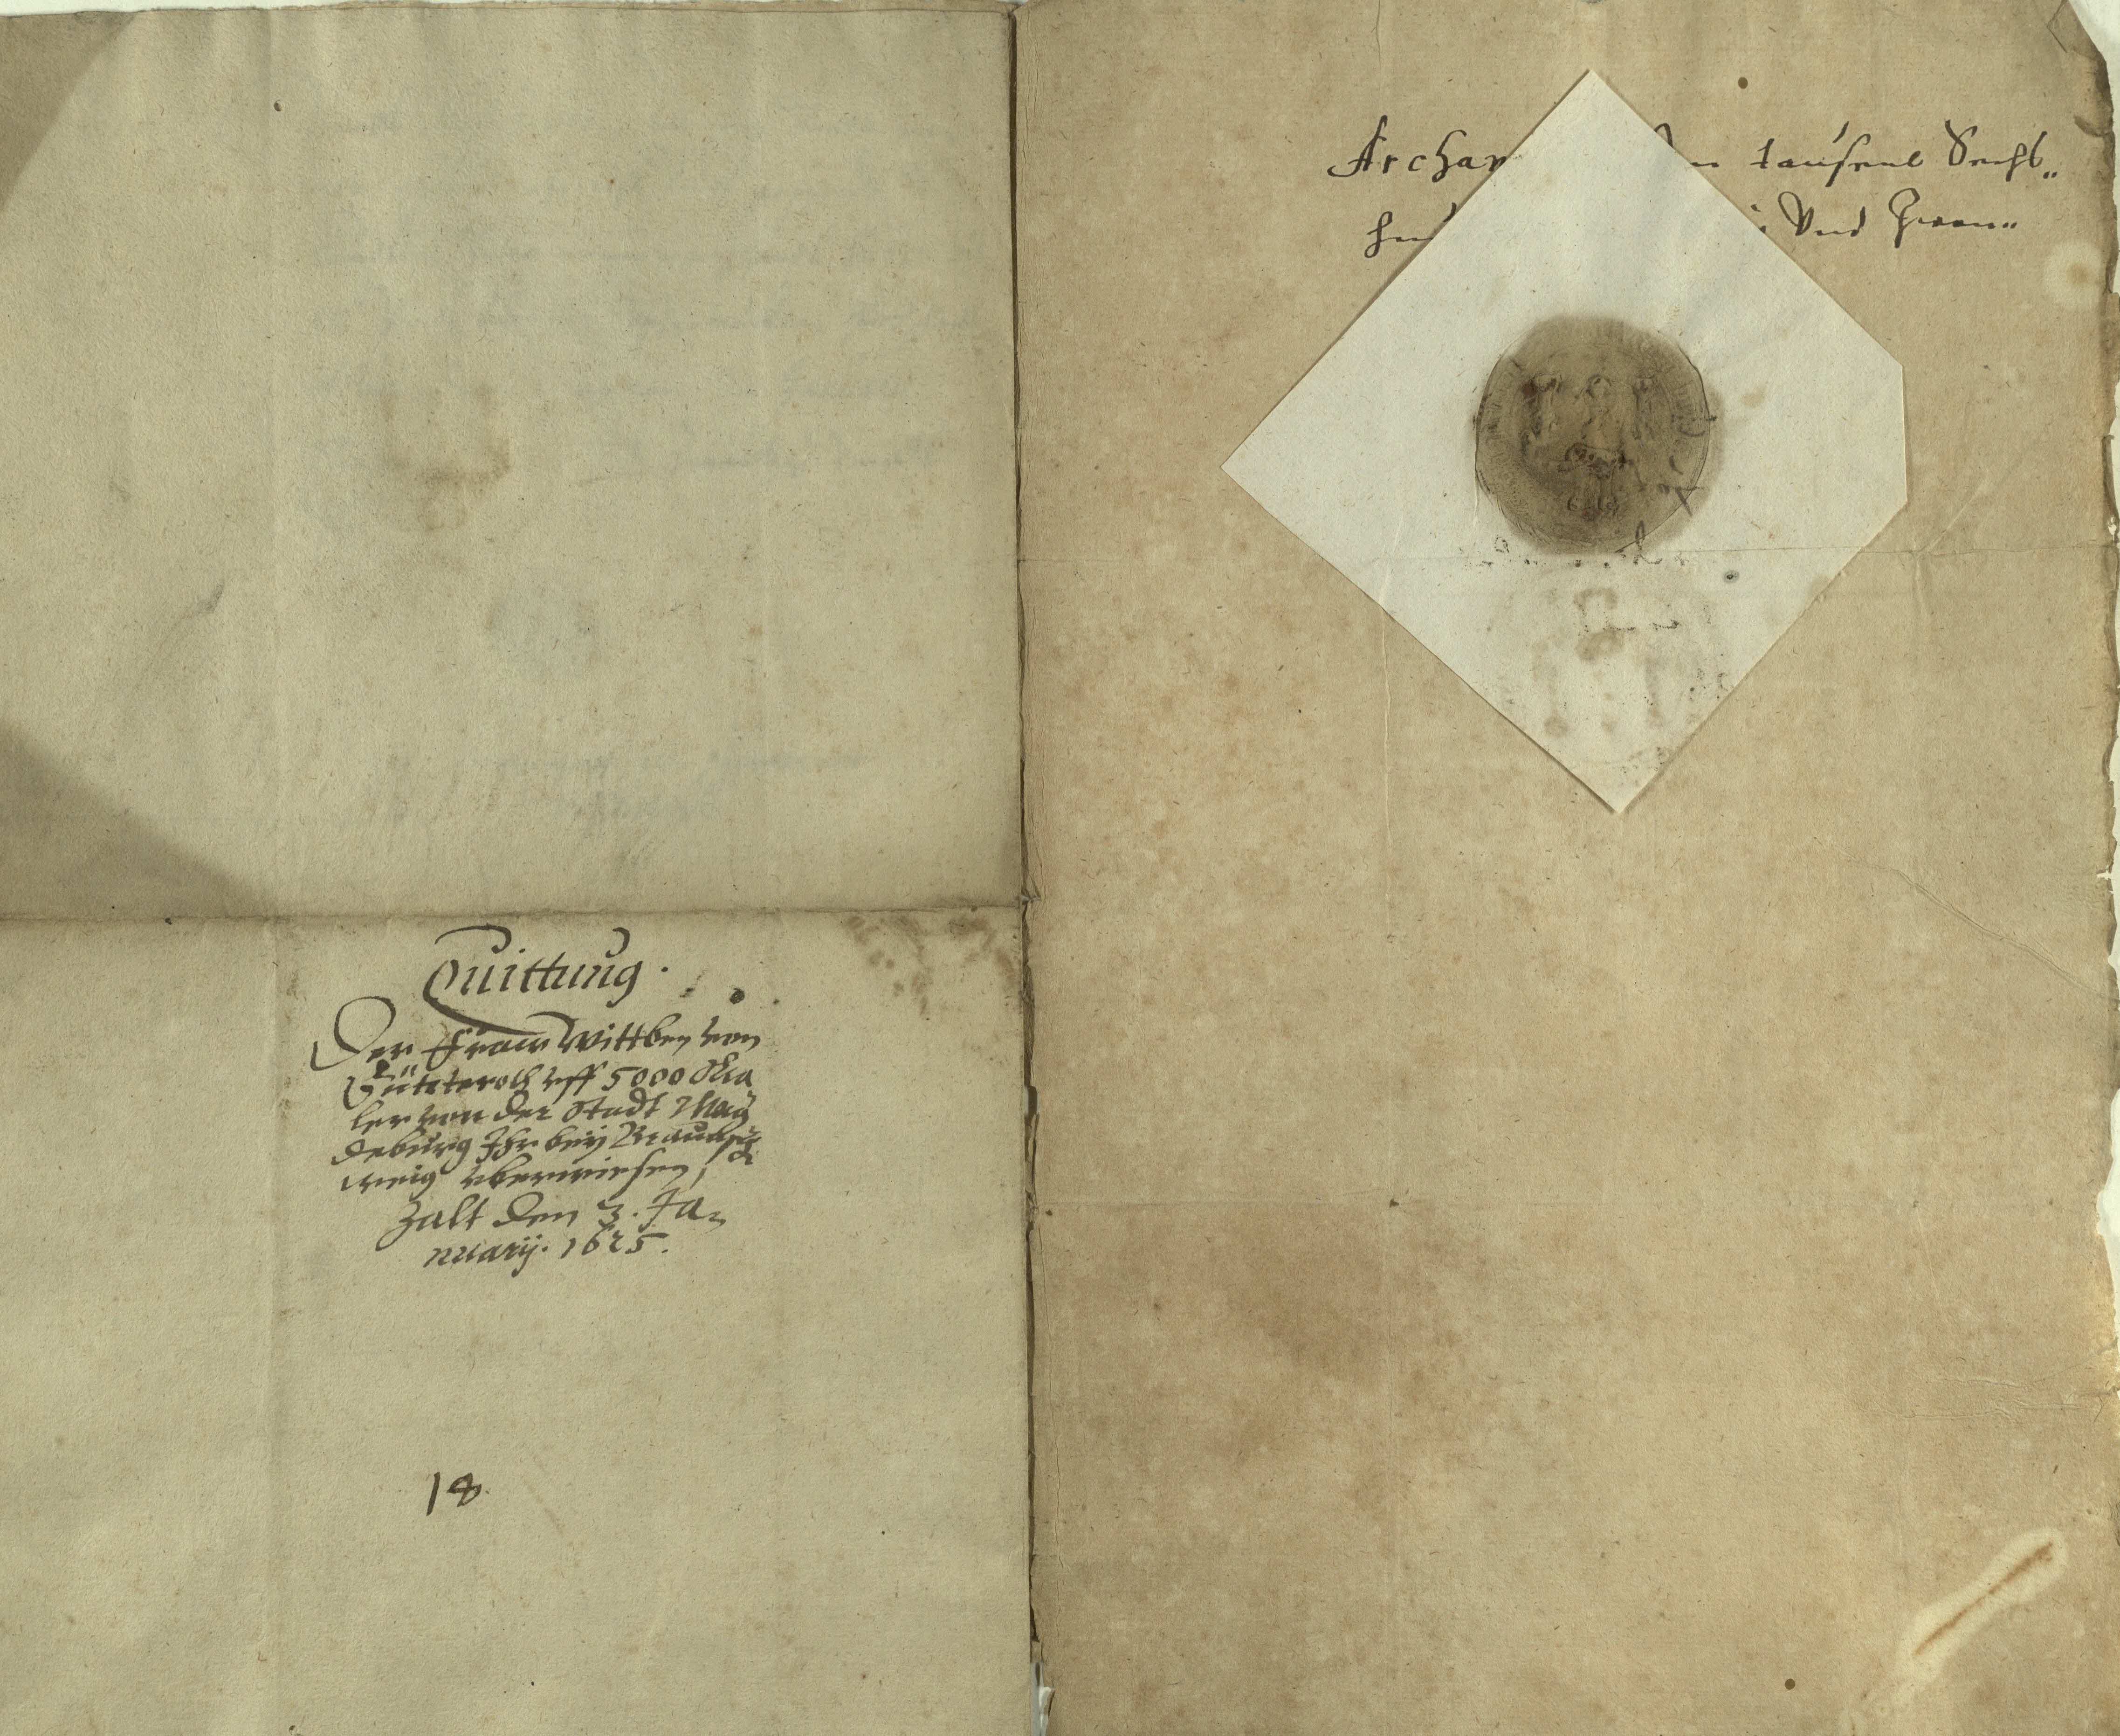 Quittung.
Der Fraw Wittben von
Lütterodt vff 5000 Tha
ler von der Stadt Mag
deburg Ihr bey Braunsch
weig vberwiesen,
Zalt den 3. Ja-
nuarij. 1625.
18
tausent Sechs„
Vnd Zwan„